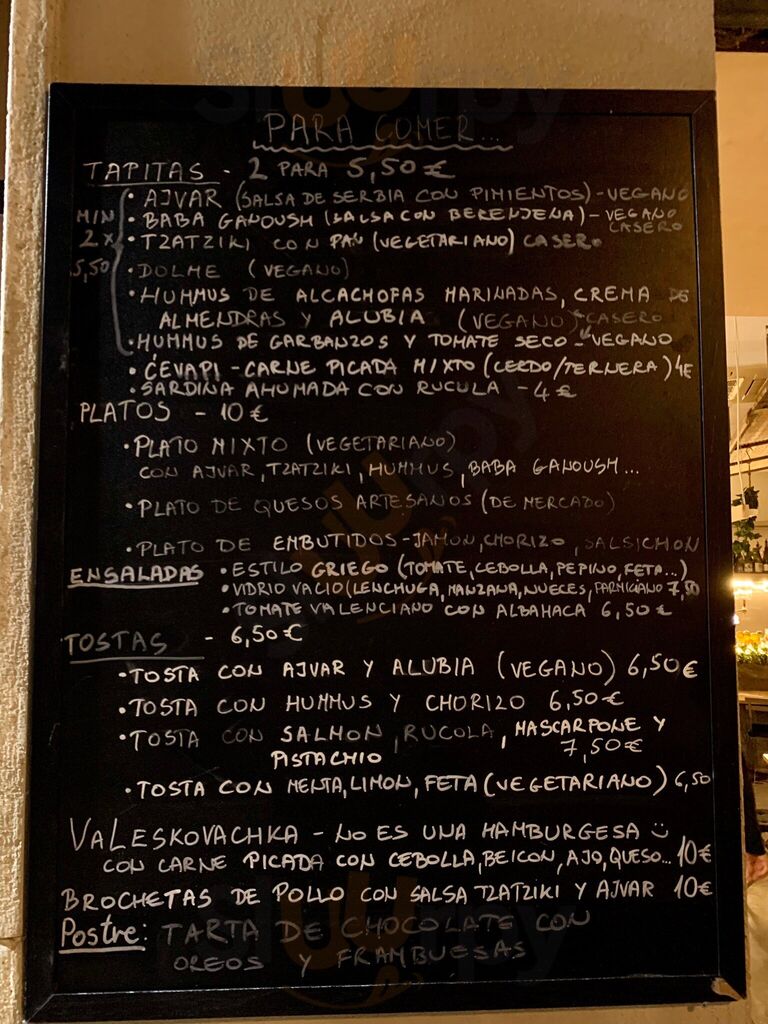 PARA COMER...
TAPITAS - 2 PARA 5,50€
• AJVAR (SALSA DE SERBIA CON PIMIENTOS) - VEGANO
MIN 2x 5,50
• BABA GANOUSH (SALSA CON BERENJENA) - VEGANO CASERO
• TZATZIKI CON PAN (VEGETARIANO) CASERO
• DOLME (VEGANO)
• HUMMUS DE ALCACHOFAS MARINADAS, CREMA DE
ALMENDRAS Y ALUBIA (VEGANO) CASERO
• HUMMUS DE GARBANZOS Y TOMATE SECO - VEGANO
• ĆEVAPI - CARNE PICADA MIXTO (CERDO/TERNERA) 4€
• SARDINA AHUMADA CON RUCULA - 4€
PLATOS - 10€
• PLATO MIXTO (VEGETARIANO)
CON AJVAR, TZATZIKI, HUMMUS, BABA GANOUSH...
• PLATO DE QUESOS ARTESANOS (DE MERCADO)
• PLATO DE EMBUTIDOS - JAMON, CHORIZO, SALSICHON
ENSALADAS • ESTILO GRIEGO (TOMATE, CEBOLLA, PEPINO, FETA...)
• VIDRIO VACIO (LENCHUGA, MANZANA, NUECES, PARMIGIANO 7,50
• TOMATE VALENCIANO CON ALBAHACA 6,50€
TOSTAS - 6,50€
• TOSTA CON AJVAR Y ALUBIA (VEGANO) 6,50€
• TOSTA CON HUMMUS Y CHORIZO 6,50€
• TOSTA CON SALMON, RUCOLA, MASCARPONE Y
PISTACHIO 7,50€
• TOSTA CON MENTA, LIMON, FETA (VEGETARIANO) 6,50
VALESKOVACHKA - NO ES UNA HAMBURGESA
CON CARNE PICADA CON CEBOLLA, BEICON, AJO, QUESO... 10€
BROCHETAS DE POLLO CON SALSA TZATZIKI Y AJVAR 10€
Postre: TARTA DE CHOCOLATE CON
OREOS Y FRAMBUESAS
sluurpy
sluurpy
sluurpy